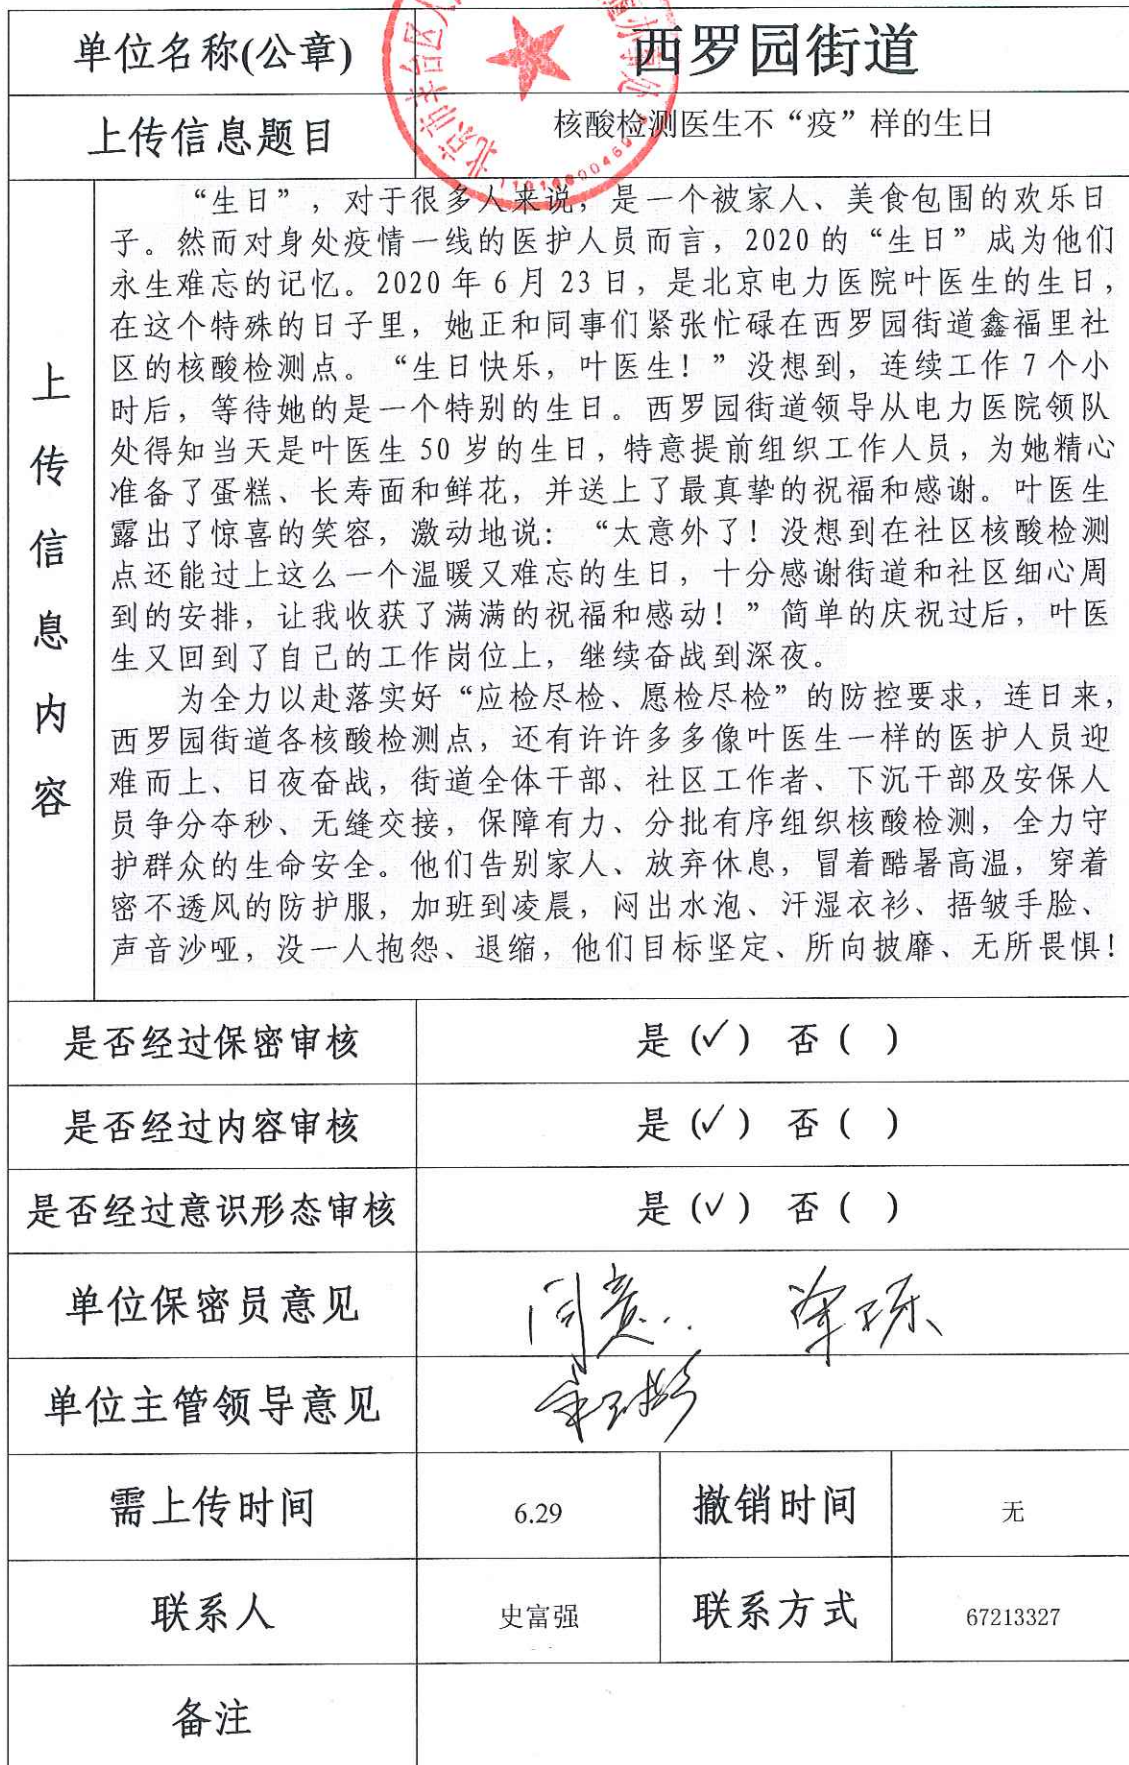 单位名称(公章) 西罗园街道
上传信息题目 核酸检测医生不“疫”样的生日
上传信息内容
“生日”，对于很多人来说，是一个被家人、美食包围的欢乐日
子。然而对身处疫情一线的医护人员而言，2020的“生日”成为他们
永生难忘的记忆。2020年6月23日，是北京电力医院叶医生的生日，
在这个特殊的日子里，她正和同事们紧张忙碌在西罗园街道鑫福里社
区的核酸检测点。“生日快乐，叶医生！”没想到，连续工作7个小
时后，等待她的是一个特别的生日。西罗园街道领导从电力医院领队
处得知当天是叶医生50岁的生日，特意提前组织工作人员，为她精心
准备了蛋糕、长寿面和鲜花，并送上了最真挚的祝福和感谢。叶医生
露出了惊喜的笑容，激动地说：“太意外了！没想到在社区核酸检测
点还能过上这么一个温暖又难忘的生日，十分感谢街道和社区细心周
到的安排，让我收获了满满的祝福和感动！”简单的庆祝过后，叶医
生又回到了自己的工作岗位上，继续奋战到深夜。
为全力以赴落实好“应检尽检、愿检尽检”的防控要求，连日来，
西罗园街道各核酸检测点，还有许许多多像叶医生一样的医护人员迎
难而上、日夜奋战，街道全体干部、社区工作者、下沉干部及安保人
员争分夺秒、无缝交接，保障有力、分批有序组织核酸检测，全力守
护群众的生命安全。他们告别家人、放弃休息，冒着酷暑高温，穿着
密不透风的防护服，加班到凌晨，闷出水泡、汗湿衣衫、捂皱手脸、
声音沙哑，没一人抱怨、退缩，他们目标坚定、所向披靡、无所畏惧！
是否经过保密审核 是(✓) 否( )
是否经过内容审核 是(✓) 否( )
是否经过意识形态审核 是(✓) 否( )
单位保密员意见 同意
单位主管领导意见
需上传时间 6.29 撤销时间 无
联系人 史富强 联系方式 67213327
备注
北京市丰台区人